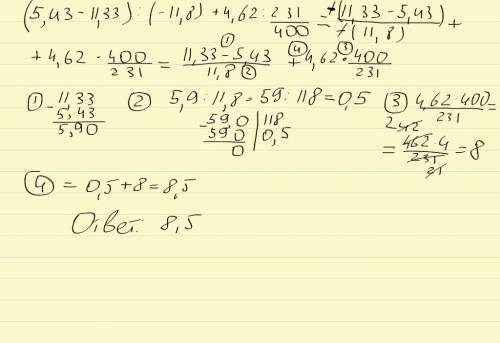 (5,43 − 11,33) : (−11,8) + 4,62 : 231/400 = +(11,33 − 5,43)/+(11,8) +
+ 4,62 · 400/231 = (11,33 − 5,43)/11,8 + 4,62 · 400/231
① ② ④ ③
① − 11,33
5,43
5,90
② 5,9 : 11,8 = 59 : 118 = 0,5
− 59,0 | 118
590 | 0,5
0
③ 4,62 · 400/231 =
= 462 · 4/231 = 8
④ = 0,5 + 8 = 8,5
Ответ: 8,5